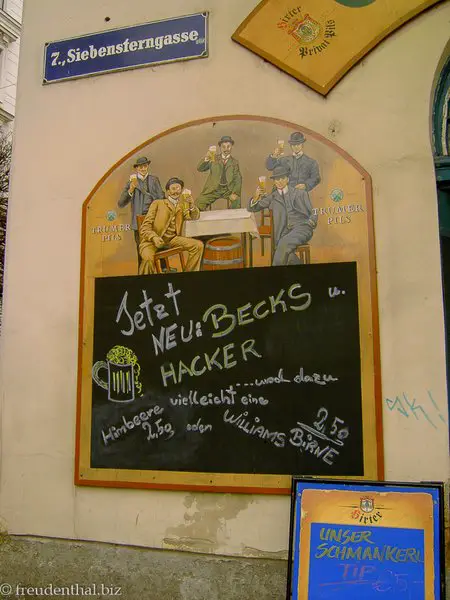 7., Siebensterngasse
Hirter
Privat Pils
TRUMER
PILS
TRUMER
PILS
Jetzt
NEU: BECKS u.
HACKER
...noch dazu
vielleicht eine
Himbeere
2,50 oder WILLIAMS BIRNE
2,50
Hirter
UNSER
SCHMANKERL
TIP
© freudenthal.biz